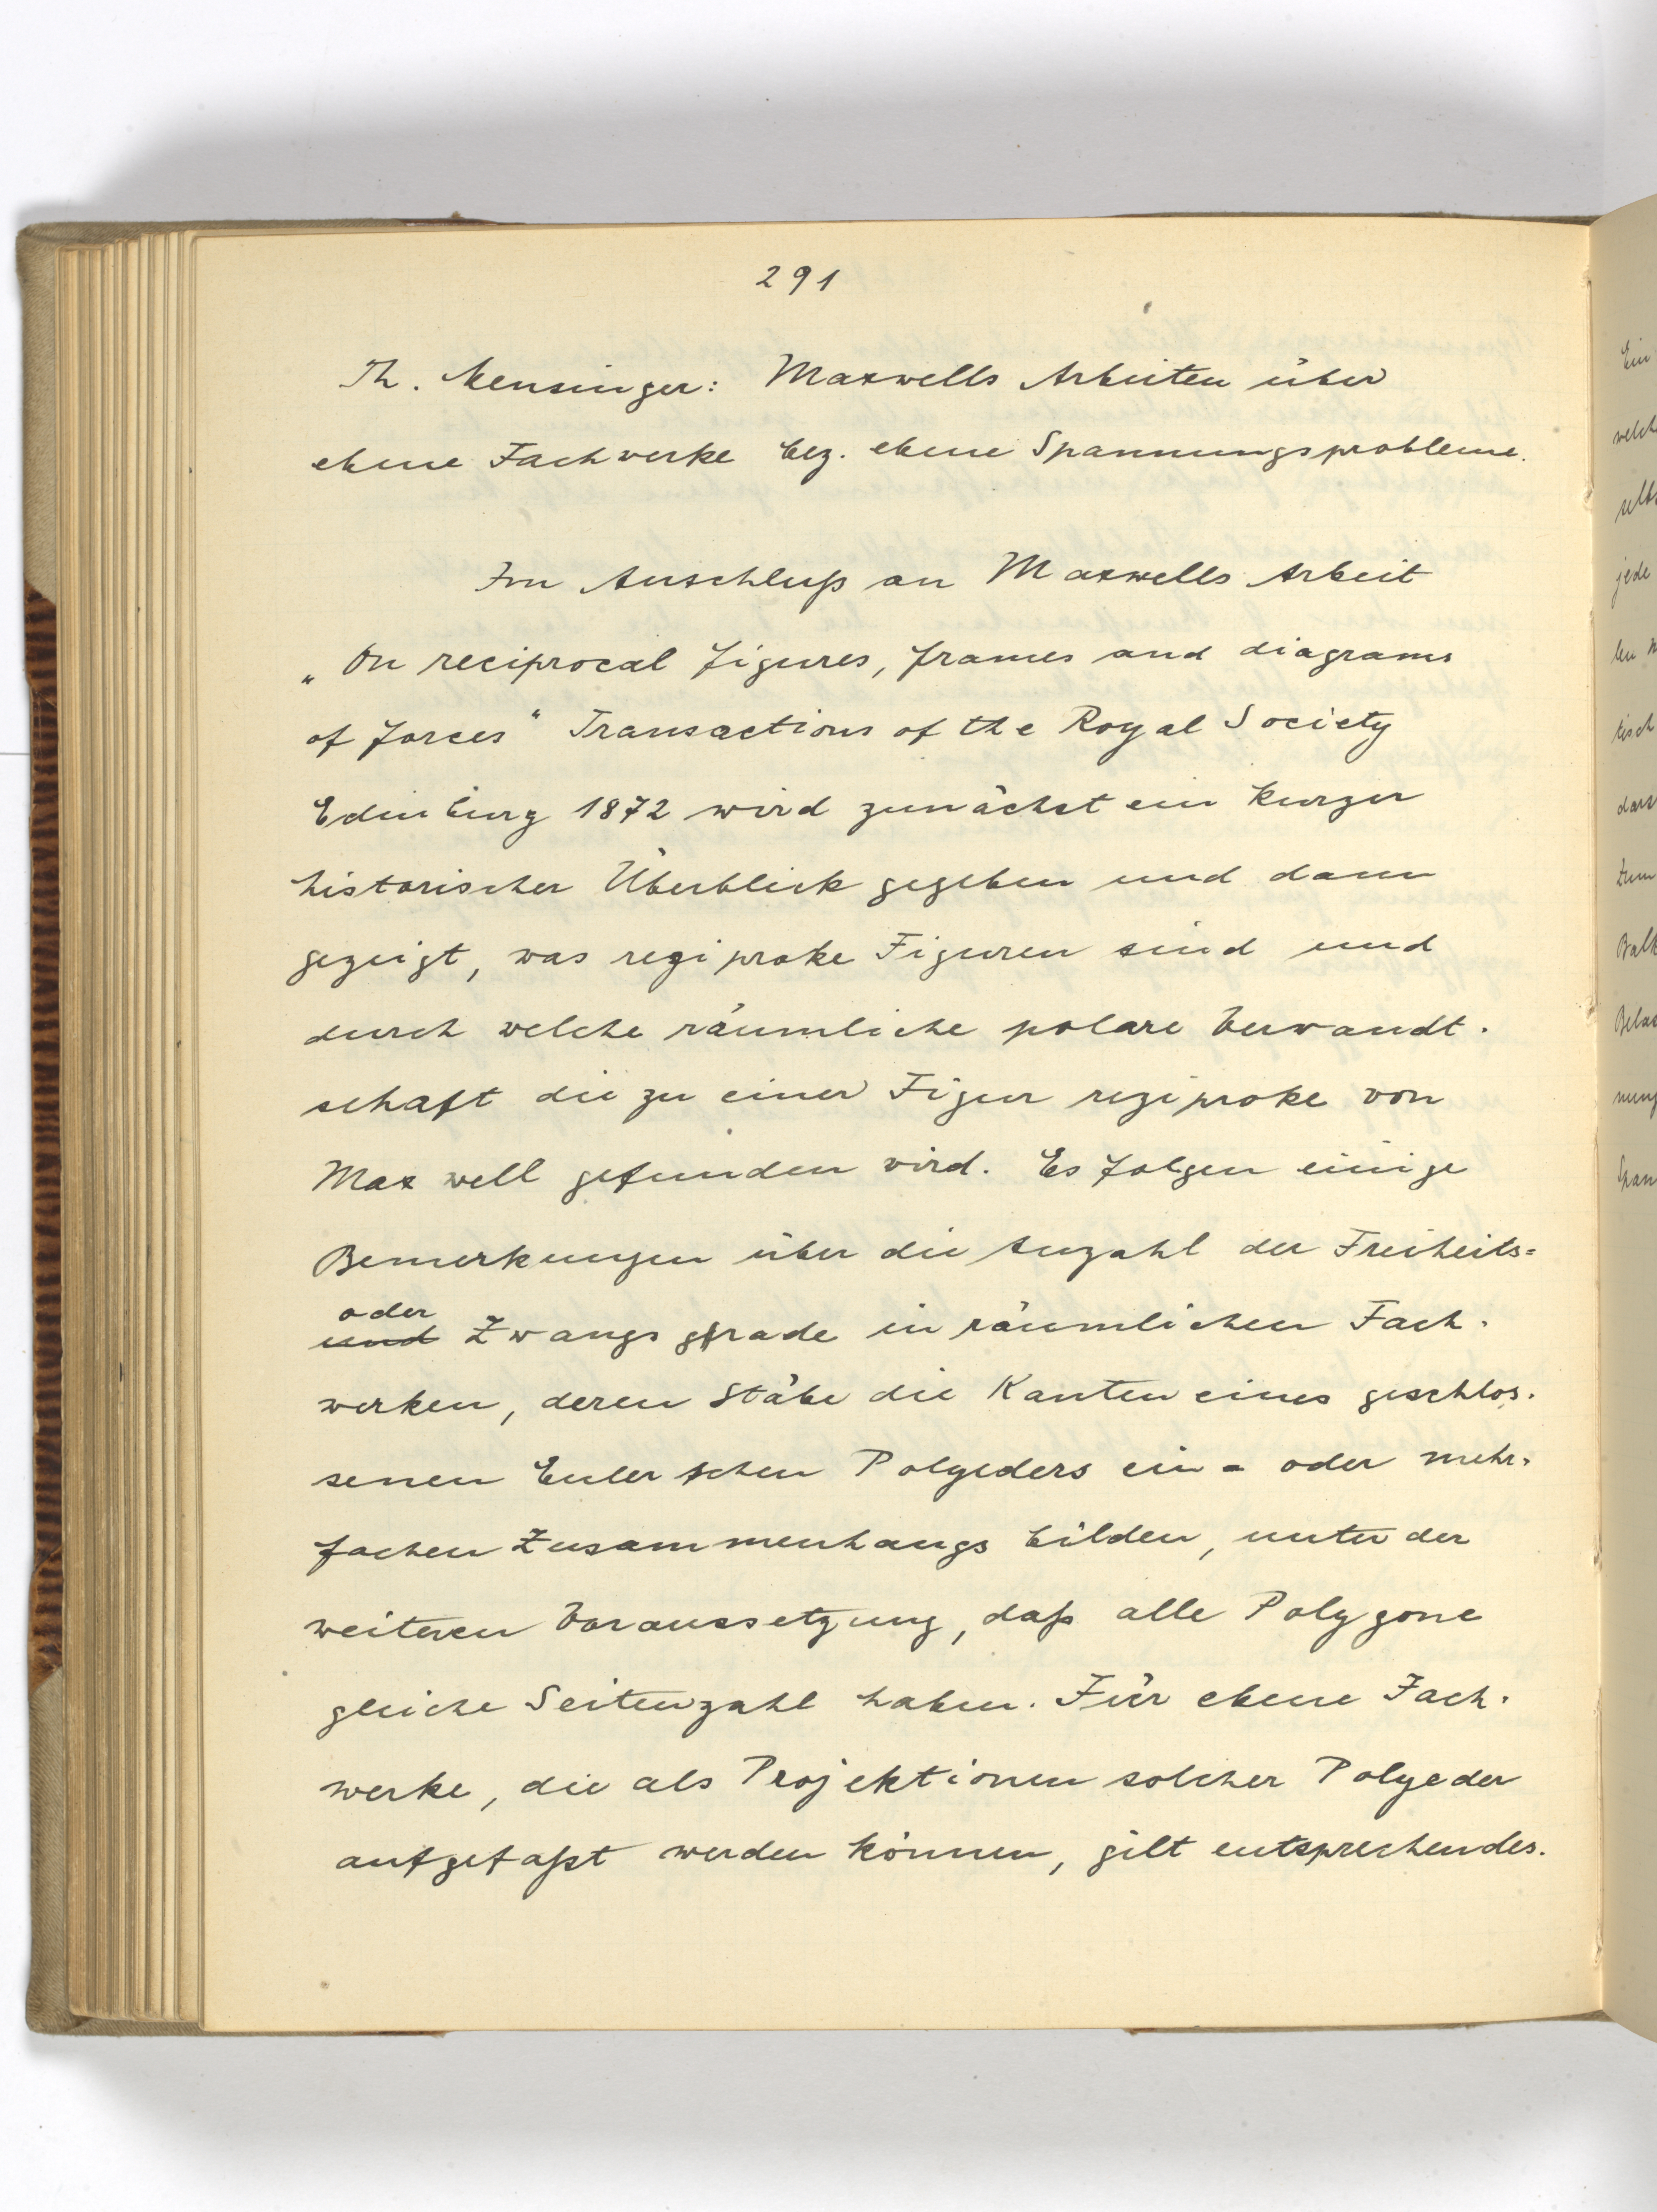 291
Th. Mensinger: Maxwells Arbeiten über
ebene Fachwerke bez. ebene Spannungsprobleme.
Im Anschluß an Maxwells Arbeit
„On reciprocal figures, frames and diagrams
of forces“ Transactions of the Royal Society
Edinburg 1872 wird zunächst ein kurzer
historischer Überblick gegeben und dann
gezeigt, was reziproke Figuren sind und
durch welche räumliche polare Verwandt-
schaft die zu einer Figur reziproke von
Maxwell gefunden wird. Es folgen einige
Bemerkungen über die Anzahl der Freiheits=
oder
und Zwangsgrade in räumlichen Fach-
werken, deren Stäbe die Kanten eines geschlos-
senen Eulerschen Polyeders ein- oder mehr-
fachen Zusammenhangs bilden, unter der
weiteren Voraussetzung, daß alle Polygone
gleiche Seitenzahl haben. Für ebene Fach-
werke, die als Projektionen solcher Polyeder
aufgefaßt werden können, gilt entsprechendes.
Ein
jede
tisch
zum